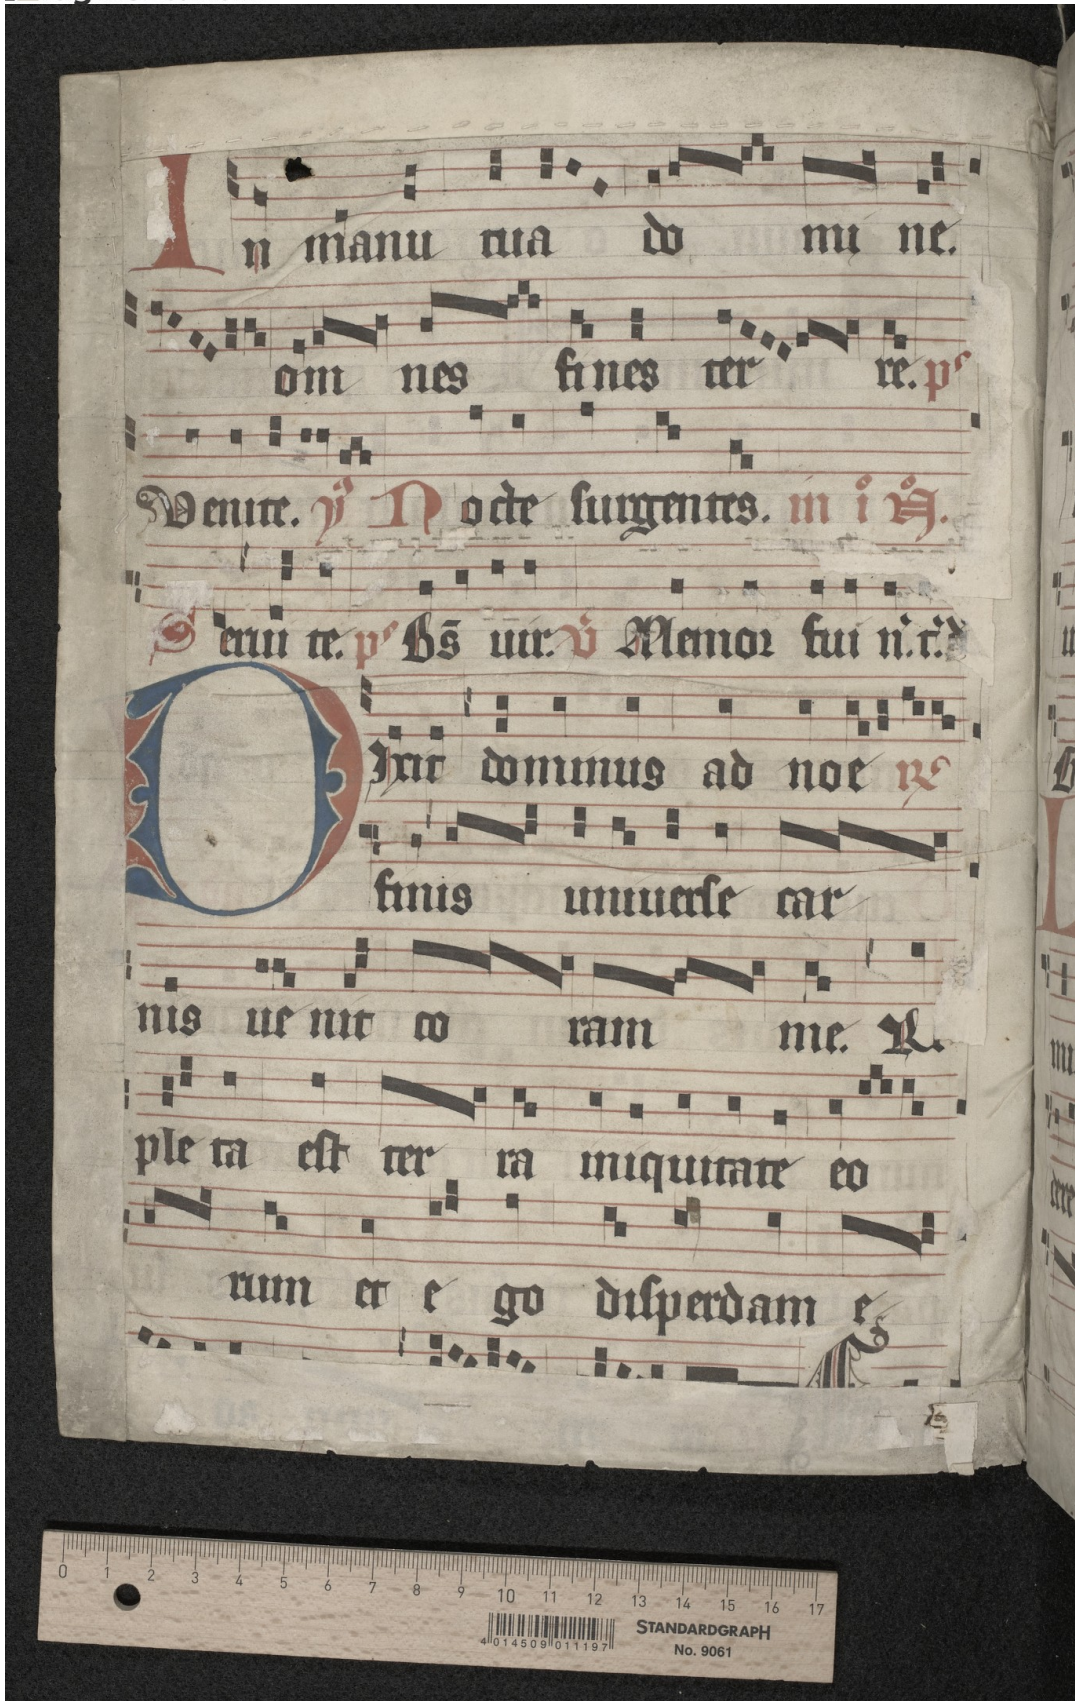 In manu tua do mi ne.
om nes fi nes ter re. ps
Venite. ym Nocte surgentes. in i No.
Serui te. ps Bs uir. V Memor fui n. t. d
Dixit dominus ad noe rx
finis uniuerse car
nis ue nit co ram me. Re
ple ta est ter ra iniquitate eo
rum et e go disperdam e
0 1 2 3 4 5 6 7 8 9 10 11 12 13 14 15 16 17
4 014509 011197
STANDARDGRAPH
No. 9061